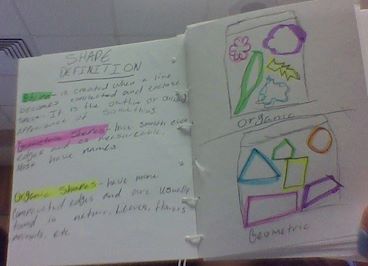 SHAPE
DEFINITION
Shape - is created when a line
becomes connected and encloses
space. It is the outline or outer
appearance of something
Geometric Shapes - have smooth even
edges and are measurable.
Most have names
Organic Shapes - have more
complicated edges and are usually
found in nature, leaves, flowers
animals, etc.
Organic
Geometric